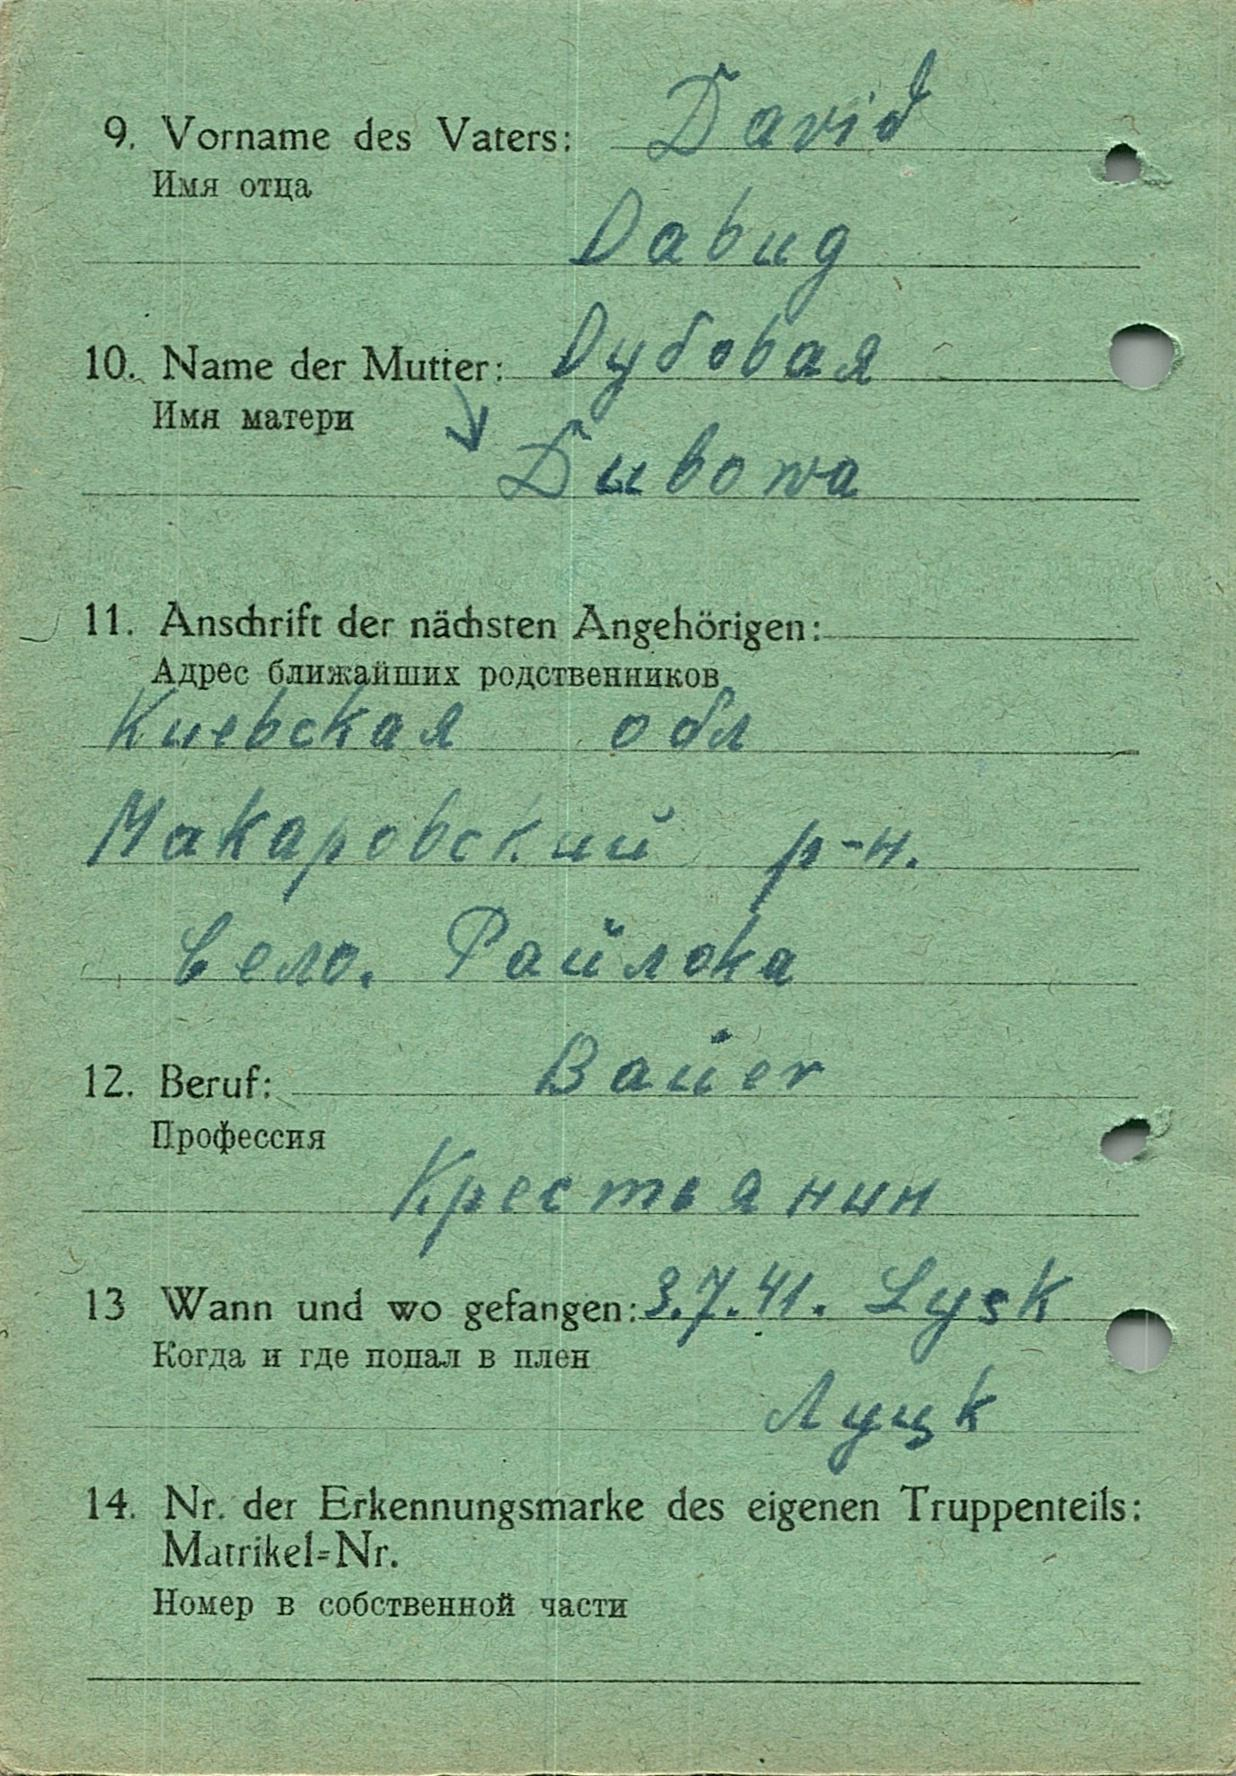 9. Vorname des Vaters: David
Имя отца
Давид
10. Name der Mutter: Дубовая
Имя матери
Dubowa
11. Anschrift der nächsten Angehörigen:
Адрес ближайших родственников
Киевская обл
Макаровский р-н.
Село. Файлока
12. Beruf: Bauer
Профессия
Крестьянин
13 Wann und wo gefangen: 3.7.41. Lysk
Когда и где попал в плен
Луцк
14. Nr. der Erkennungsmarke des eigenen Truppenteils:
Matrikel=Nr.
Номер в собственной части